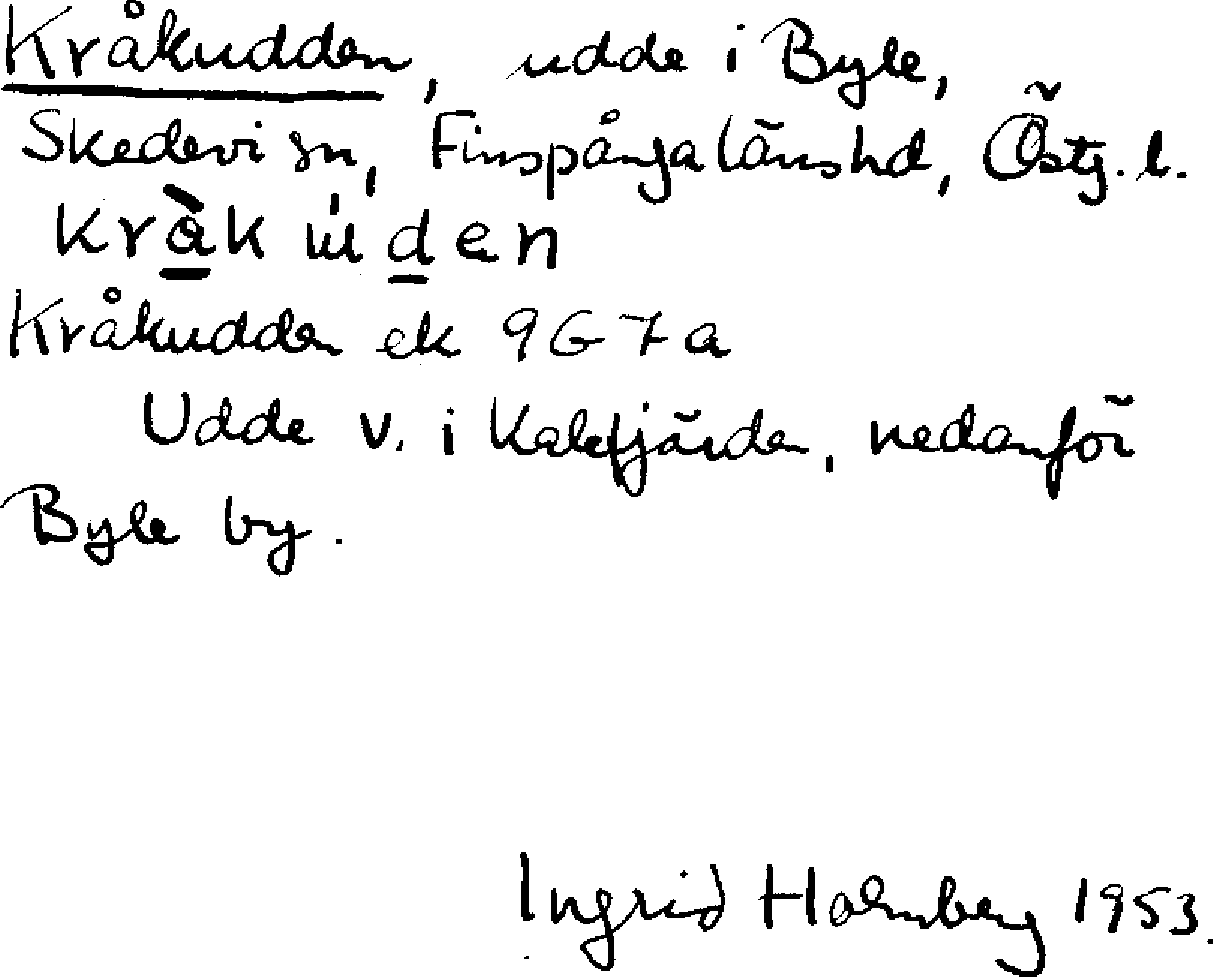 Kråkudden, udde i Byle,
Skedevi sn, Finspångalänshd, Östg. l.
kràkuden
Kråkudden ek 9G7a
Udde v. i Kalvfjärden, nedanför
Byle by.
Ingrid Holmberg 1953.